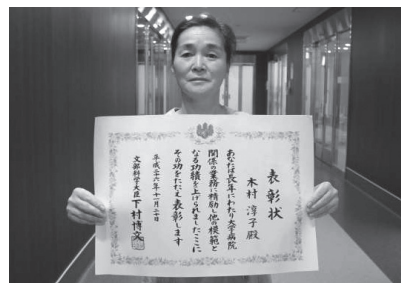 表彰状
木村淳子殿
あなたは長年にわたり大学病院
関係の業務に精励し他の模範と
なる功績を上げられましたここに
その功をたたえ表彰します
平成二十六年十一月二十日
文部科学大臣 下村博文